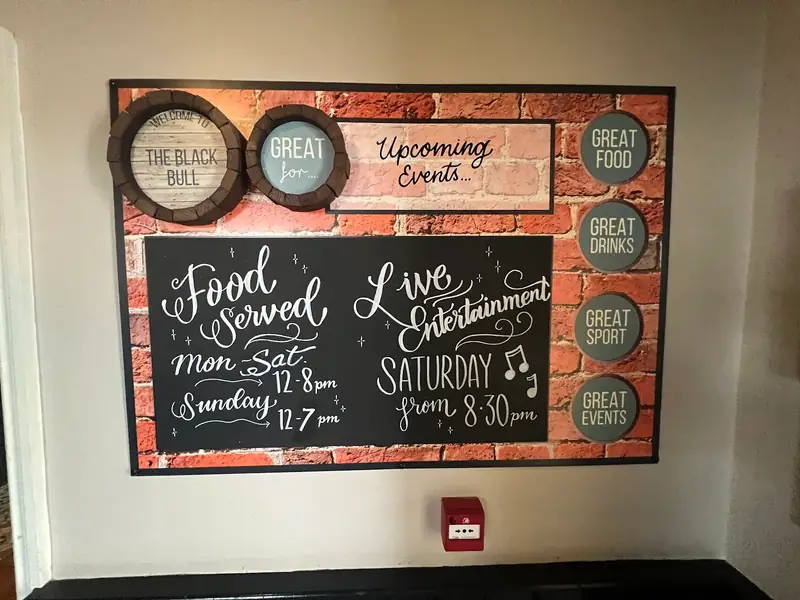 WELCOME TO
THE BLACK
BULL
GREAT
for....
Upcoming
Events...
GREAT
FOOD
GREAT
DRINKS
GREAT
SPORT
GREAT
EVENTS
Food
Served
Mon-Sat.
12-8pm
Sunday
12-7pm
Live
Entertainment
SATURDAY
from 8.30pm